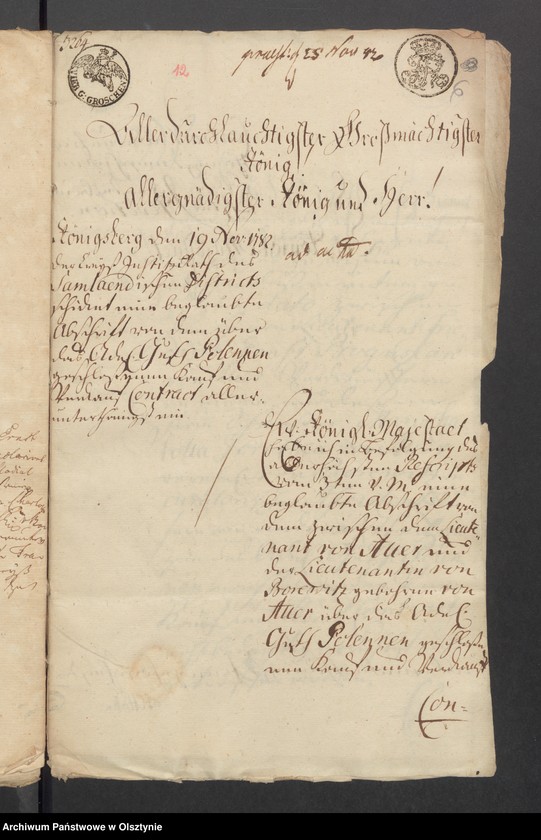 12
Allerdurchlauchtigster Großmächtigster
König
Allergnädigster König und Herr!
Königsberg den 19 Nov 1782.
der Creyß Justitz Rath des
Samlaendischen Districts
eine beglaubte
Abschrift von dem über
das Adel. Guth Polennen
geschloßenen Kauf und
Verkauf Contract aller-
unterthänigst ein.
ad acta.
Ew. Königl. Majestaet
habe ich in Befolgung des
allerhöchsten Rescripts
vom v. M. eine
beglaubte Abschrift von
dem zwischen dem Lieute
nant von Auer und
der Lieutenantin von
gebohrnen von
Auer über das Adel.
Guth Polennen geschloße
nen Kauf und Verkauf
Con-
6 GROSCHEN
Archiwum Państwowe w Olsztynie